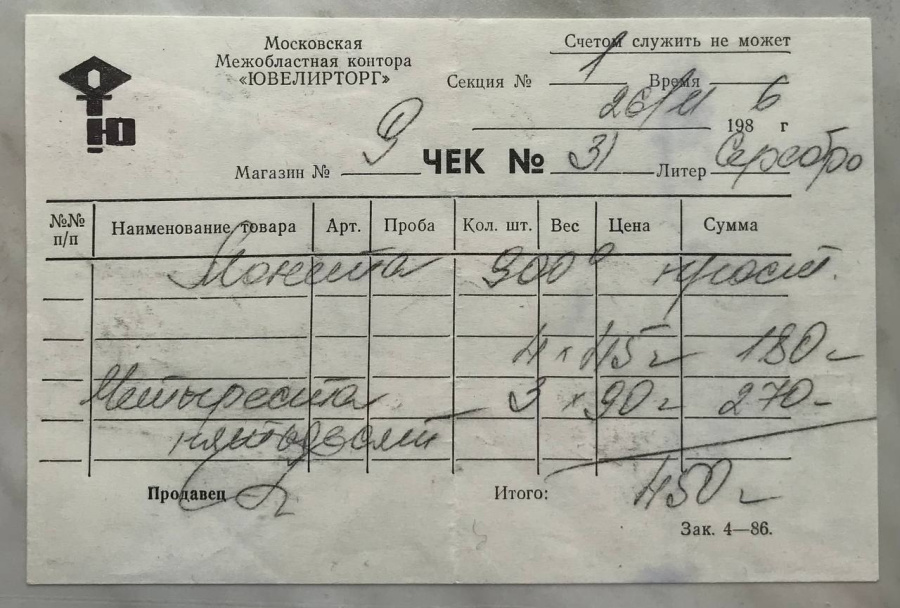 Московская
Межобластная контора
«ЮВЕЛИРТОРГ»
Счетом служить не может
Секция № 1 Время
26/II 1986 г
Магазин № 9 ЧЕК № 31 Литер Серебро
№№ п/п Наименование товара Арт. Проба Кол. шт. Вес Цена Сумма
Монета 900° прост.
4 х 45 г 180-
Четыреста 3 х 90 г 270-
пятьдесят
Продавец Итого: 450 г
Зак. 4—86.